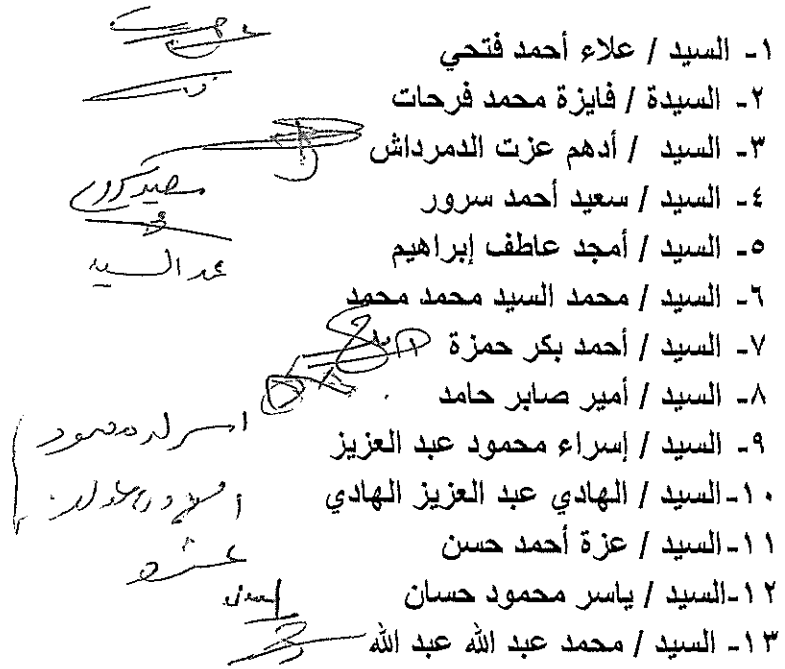 ١- السيد / علاء أحمد فتحي
٢- السيدة / فايزة محمد فرحات
٣- السيد / أدهم عزت الدمرداش
٤- السيد / سعيد أحمد سرور
٥- السيد / أمجد عاطف إبراهيم
٦- السيد / محمد السيد محمد محمد
٧- السيد / أحمد بكر حمزة
٨- السيد / أمير صابر حامد
٩- السيد / إسراء محمود عبد العزيز
١٠-السيد / الهادي عبد العزيز الهادي
١١-السيد / عزة أحمد حسن
١٢-السيد / ياسر محمود حسان
١٣- السيد / محمد عبد الله عبد الله